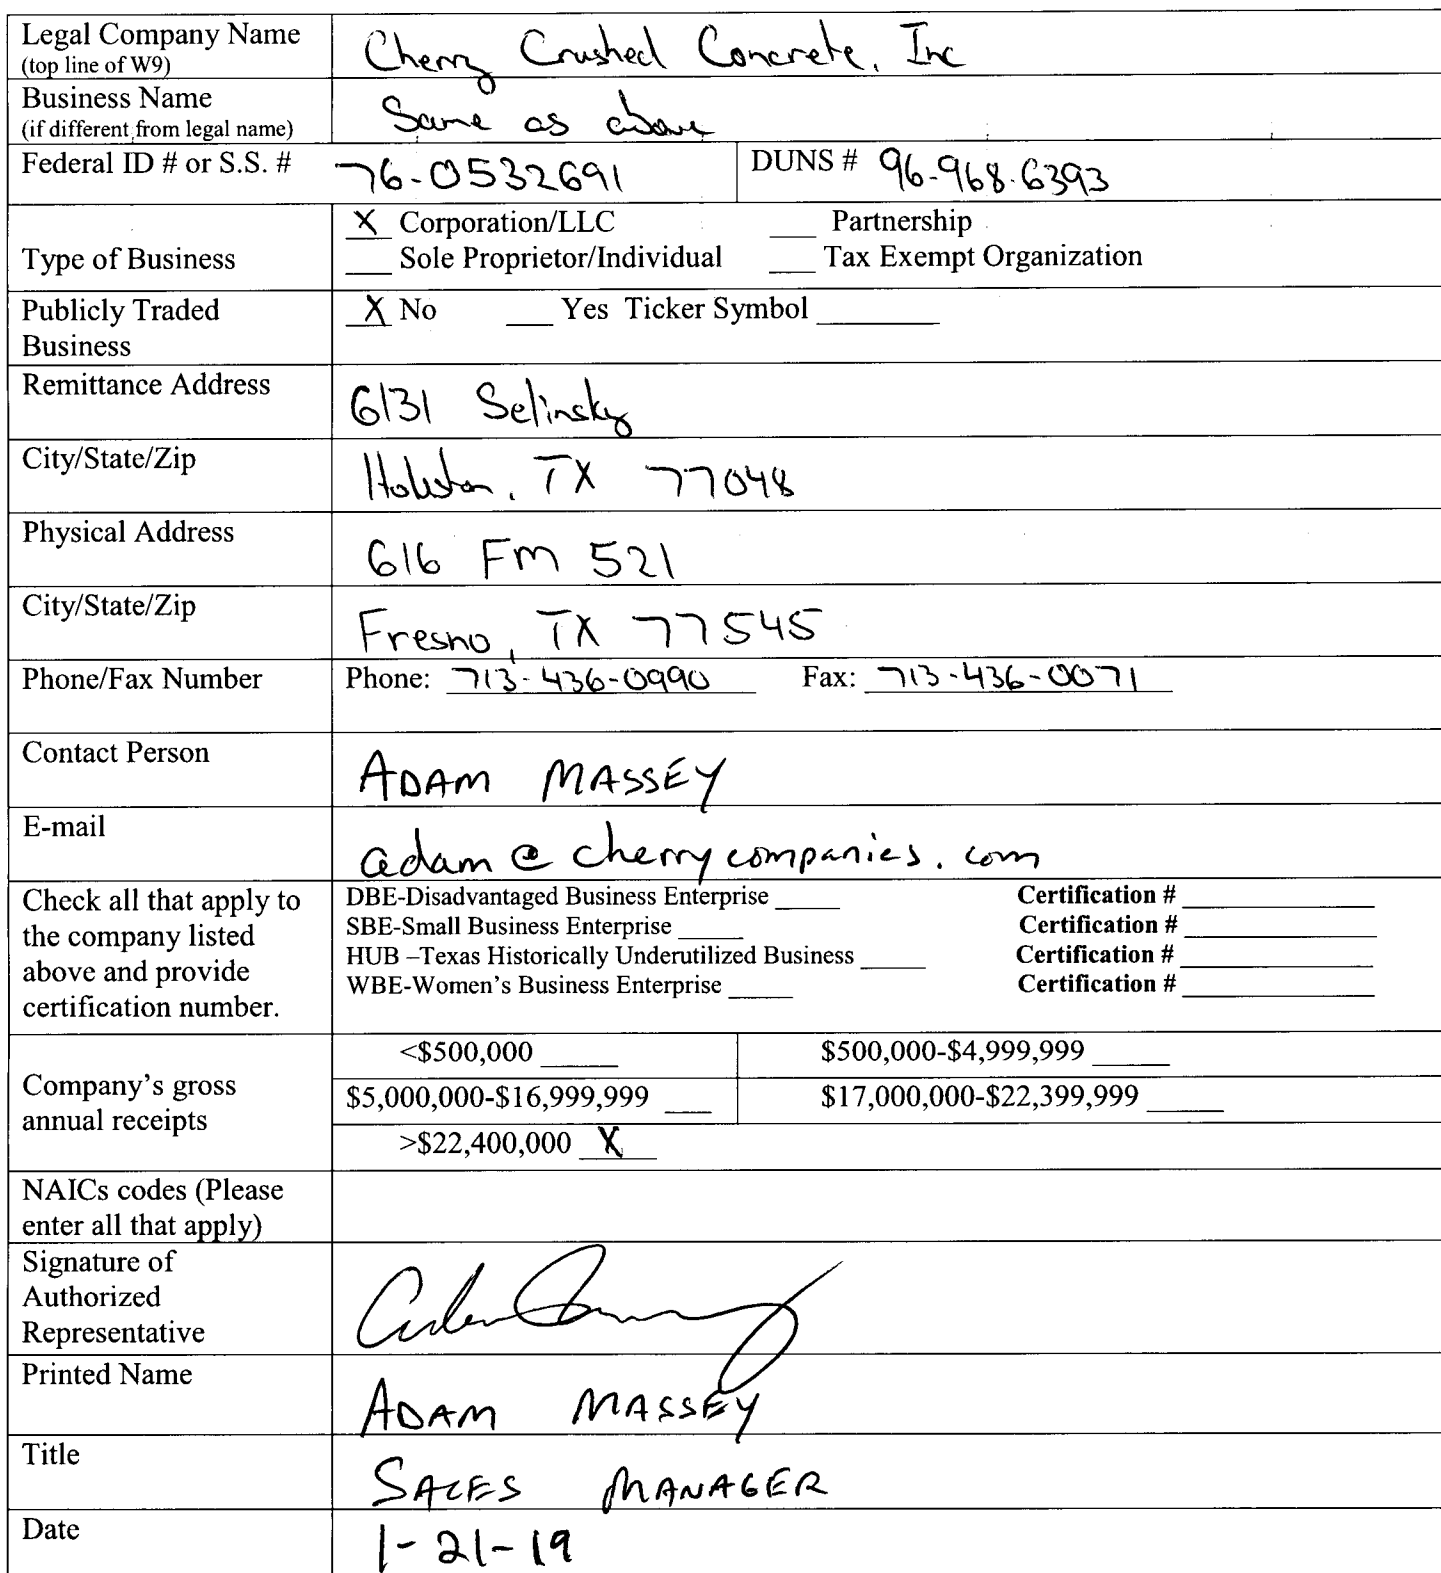 Legal Company Name Cherry Crushed Concrete, Inc
(top line of W9)
Business Name Same as above
(if different from legal name)
Federal ID # or S.S. # 76-0532691 DUNS # 96-968-6393
X Corporation/LLC ___ Partnership
Type of Business ___ Sole Proprietor/Individual ___ Tax Exempt Organization
Publicly Traded X No ___ Yes Ticker Symbol ________
Business
Remittance Address 6131 Selinsky
City/State/Zip Houston, TX 77048
Physical Address 616 Fm 521
City/State/Zip Fresno, TX 77545
Phone/Fax Number Phone: 713-436-0990 Fax: 713-436-0071
Contact Person ADAM MASSEY
E-mail adam@cherrycompanies.com
Check all that apply to
the company listed
above and provide
certification number.
DBE-Disadvantaged Business Enterprise _____ Certification # _____________
SBE-Small Business Enterprise _____ Certification # _____________
HUB –Texas Historically Underutilized Business _____ Certification # _____________
WBE-Women's Business Enterprise _____ Certification # _____________
Company's gross
annual receipts
<$500,000 _____ $500,000-$4,999,999 _____
$5,000,000-$16,999,999 ___ $17,000,000-$22,399,999 _____
>$22,400,000 X
NAICs codes (Please
enter all that apply)
Signature of
Authorized
Representative
Printed Name ADAM MASSEY
Title SALES MANAGER
Date 1-21-19